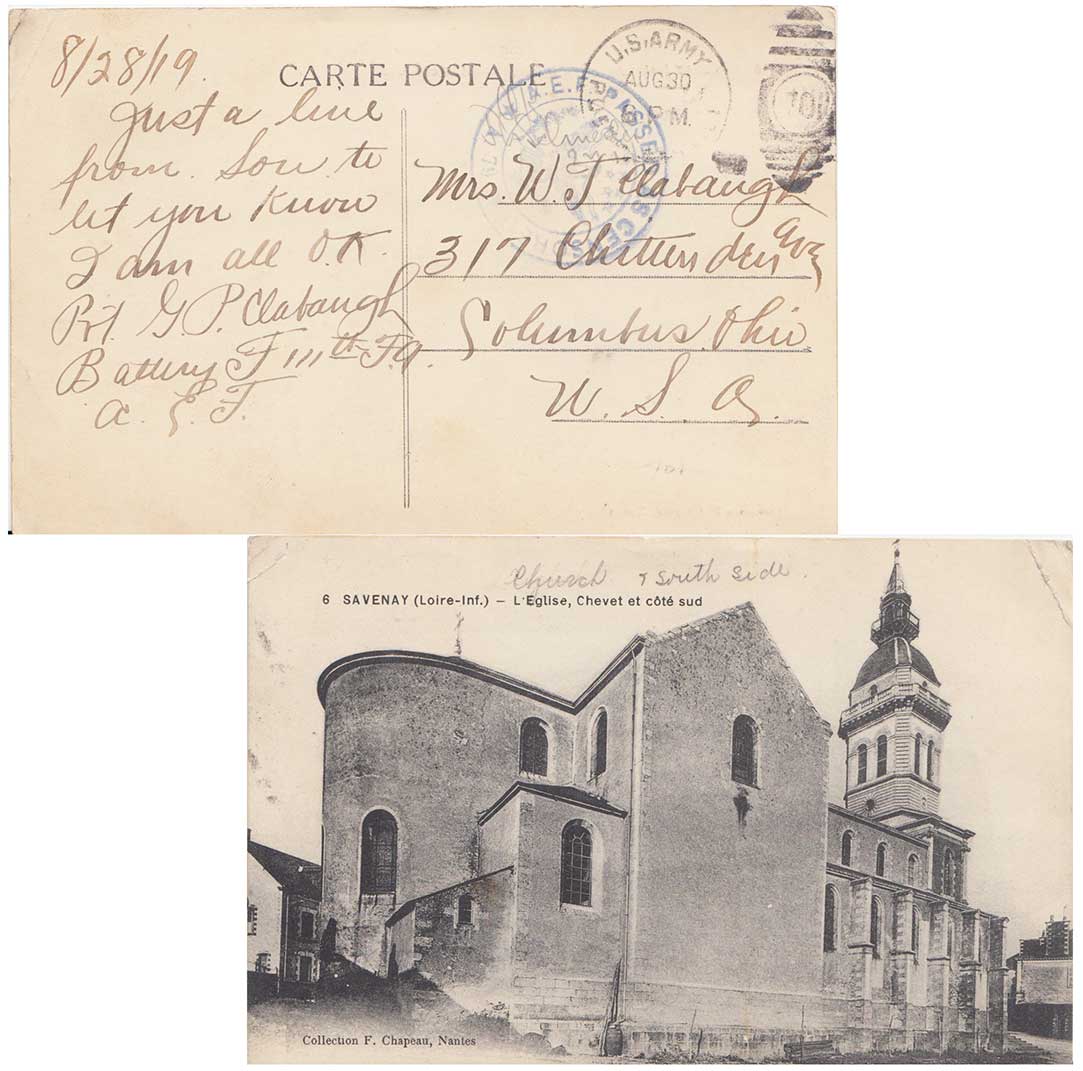 8/28/19.
CARTE POSTALE
Just a line
from Son to
let you know
I am all O.K.
Pvt G.P. Clabaugh
Battery F 111th F.A.
A. E. F.
U.S. ARMY
AUG 30
P.M.
701
A.E.F. PASSED AS CENSORED
Mrs. W. T Clabaugh
317 Chittenden Ave
Columbus, Ohio
U. S. A.
Church & South Side.
6 SAVENAY (Loire-Inf.) – L'Eglise, Chevet et côté sud
Collection F. Chapeau, Nantes